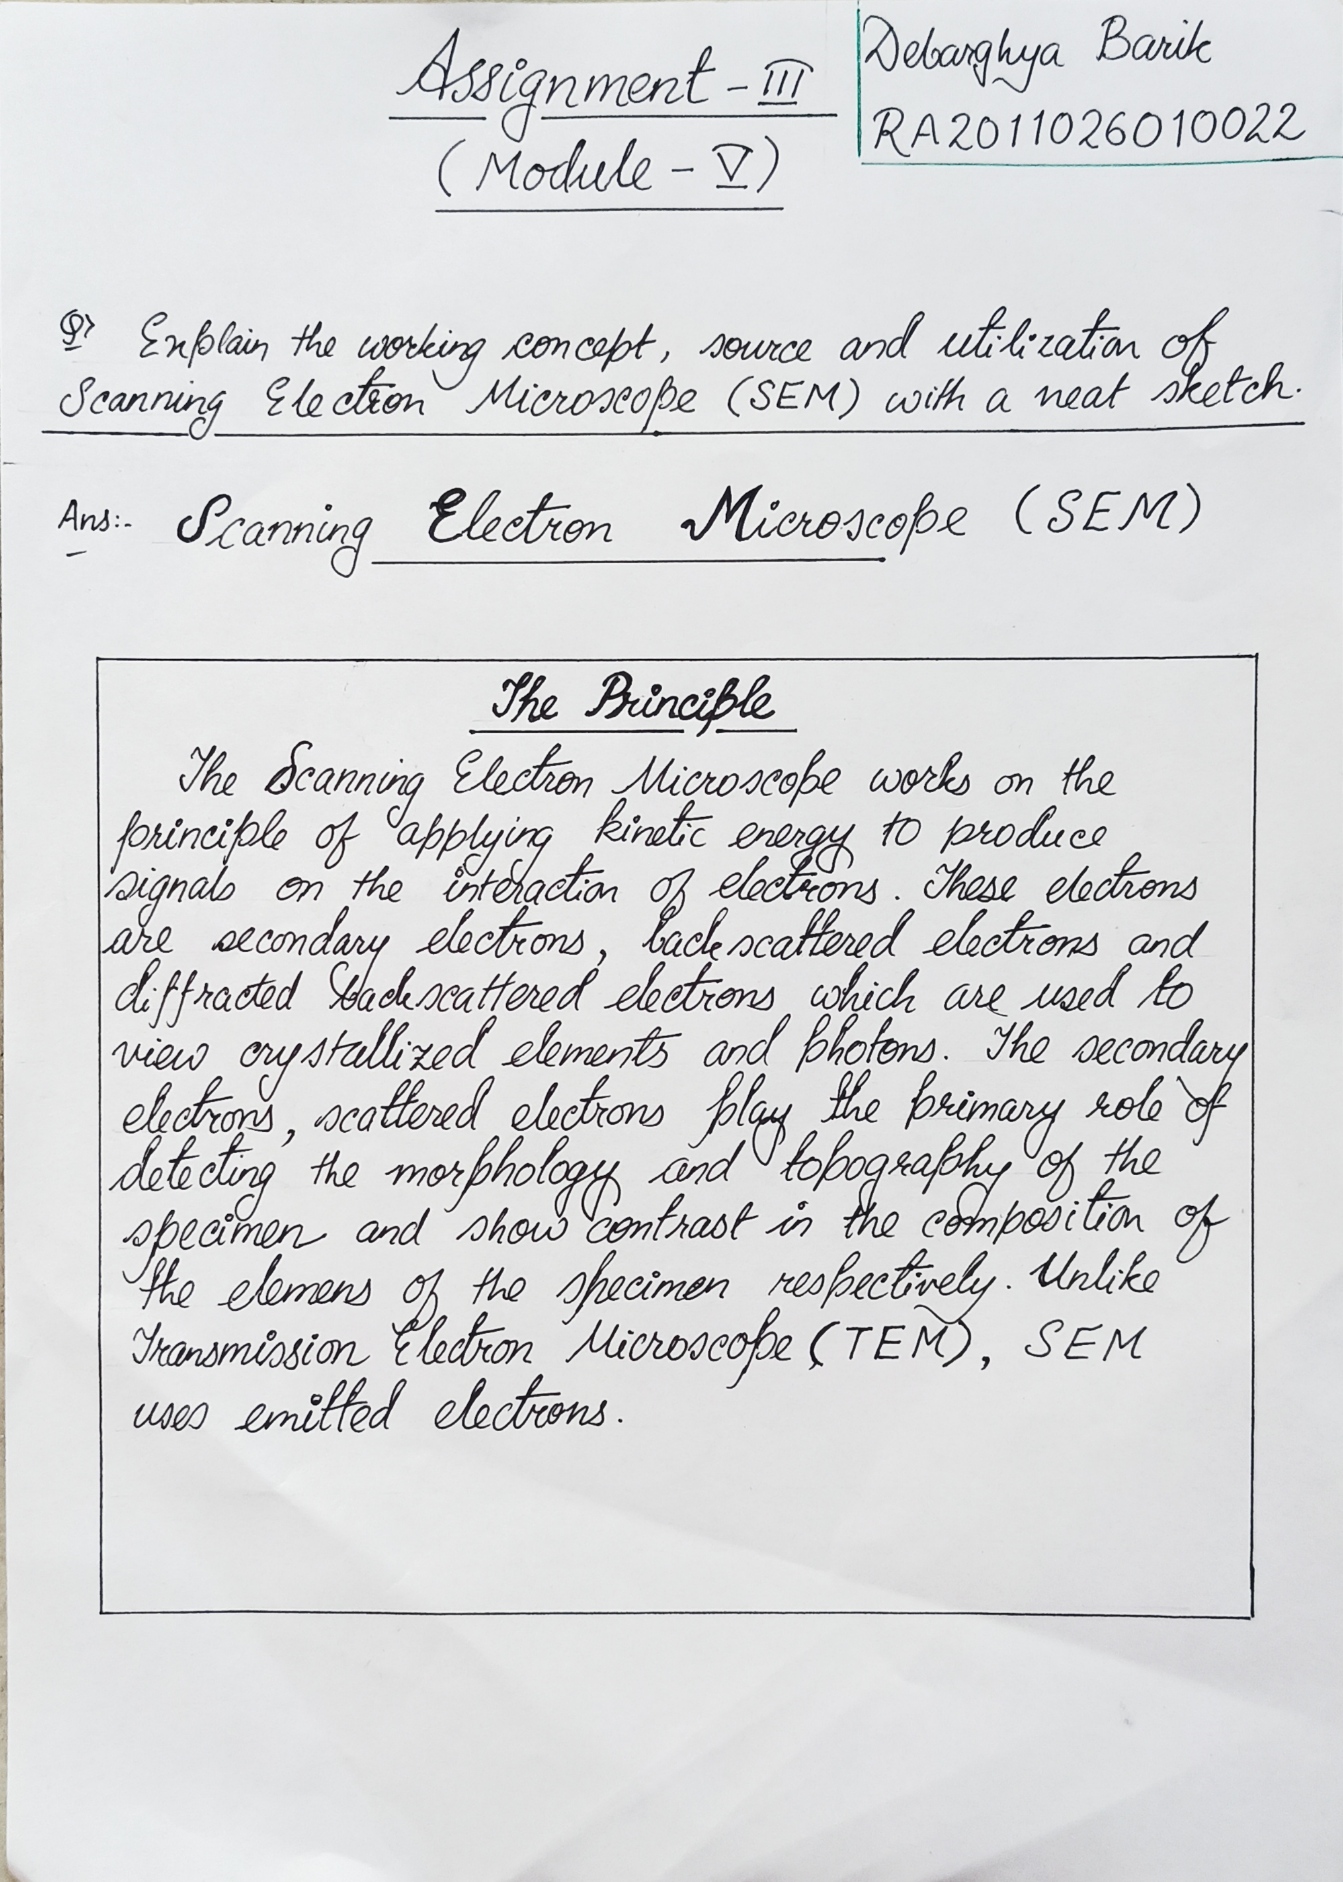 Assignment - III
(Module - V)
Debarghya Barik
RA2011026010022
Q> Explain the working concept, source and utilization of
Scanning Electron Microscope (SEM) with a neat sketch.
Ans:- Scanning Electron Microscope (SEM)
The Principle
The Scanning Electron Microscope works on the
principle of applying kinetic energy to produce
signals on the interaction of electrons. These electrons
are secondary electrons, backscattered electrons and
diffracted backscattered electrons which are used to
view crystallized elements and photons. The secondary
electrons, scattered electrons play the primary role of
detecting the morphology and topography of the
specimen and show contrast in the composition of
the elemens of the specimen respectively. Unlike
Transmission Electron Microscope (TEM), SEM
uses emitted electrons.